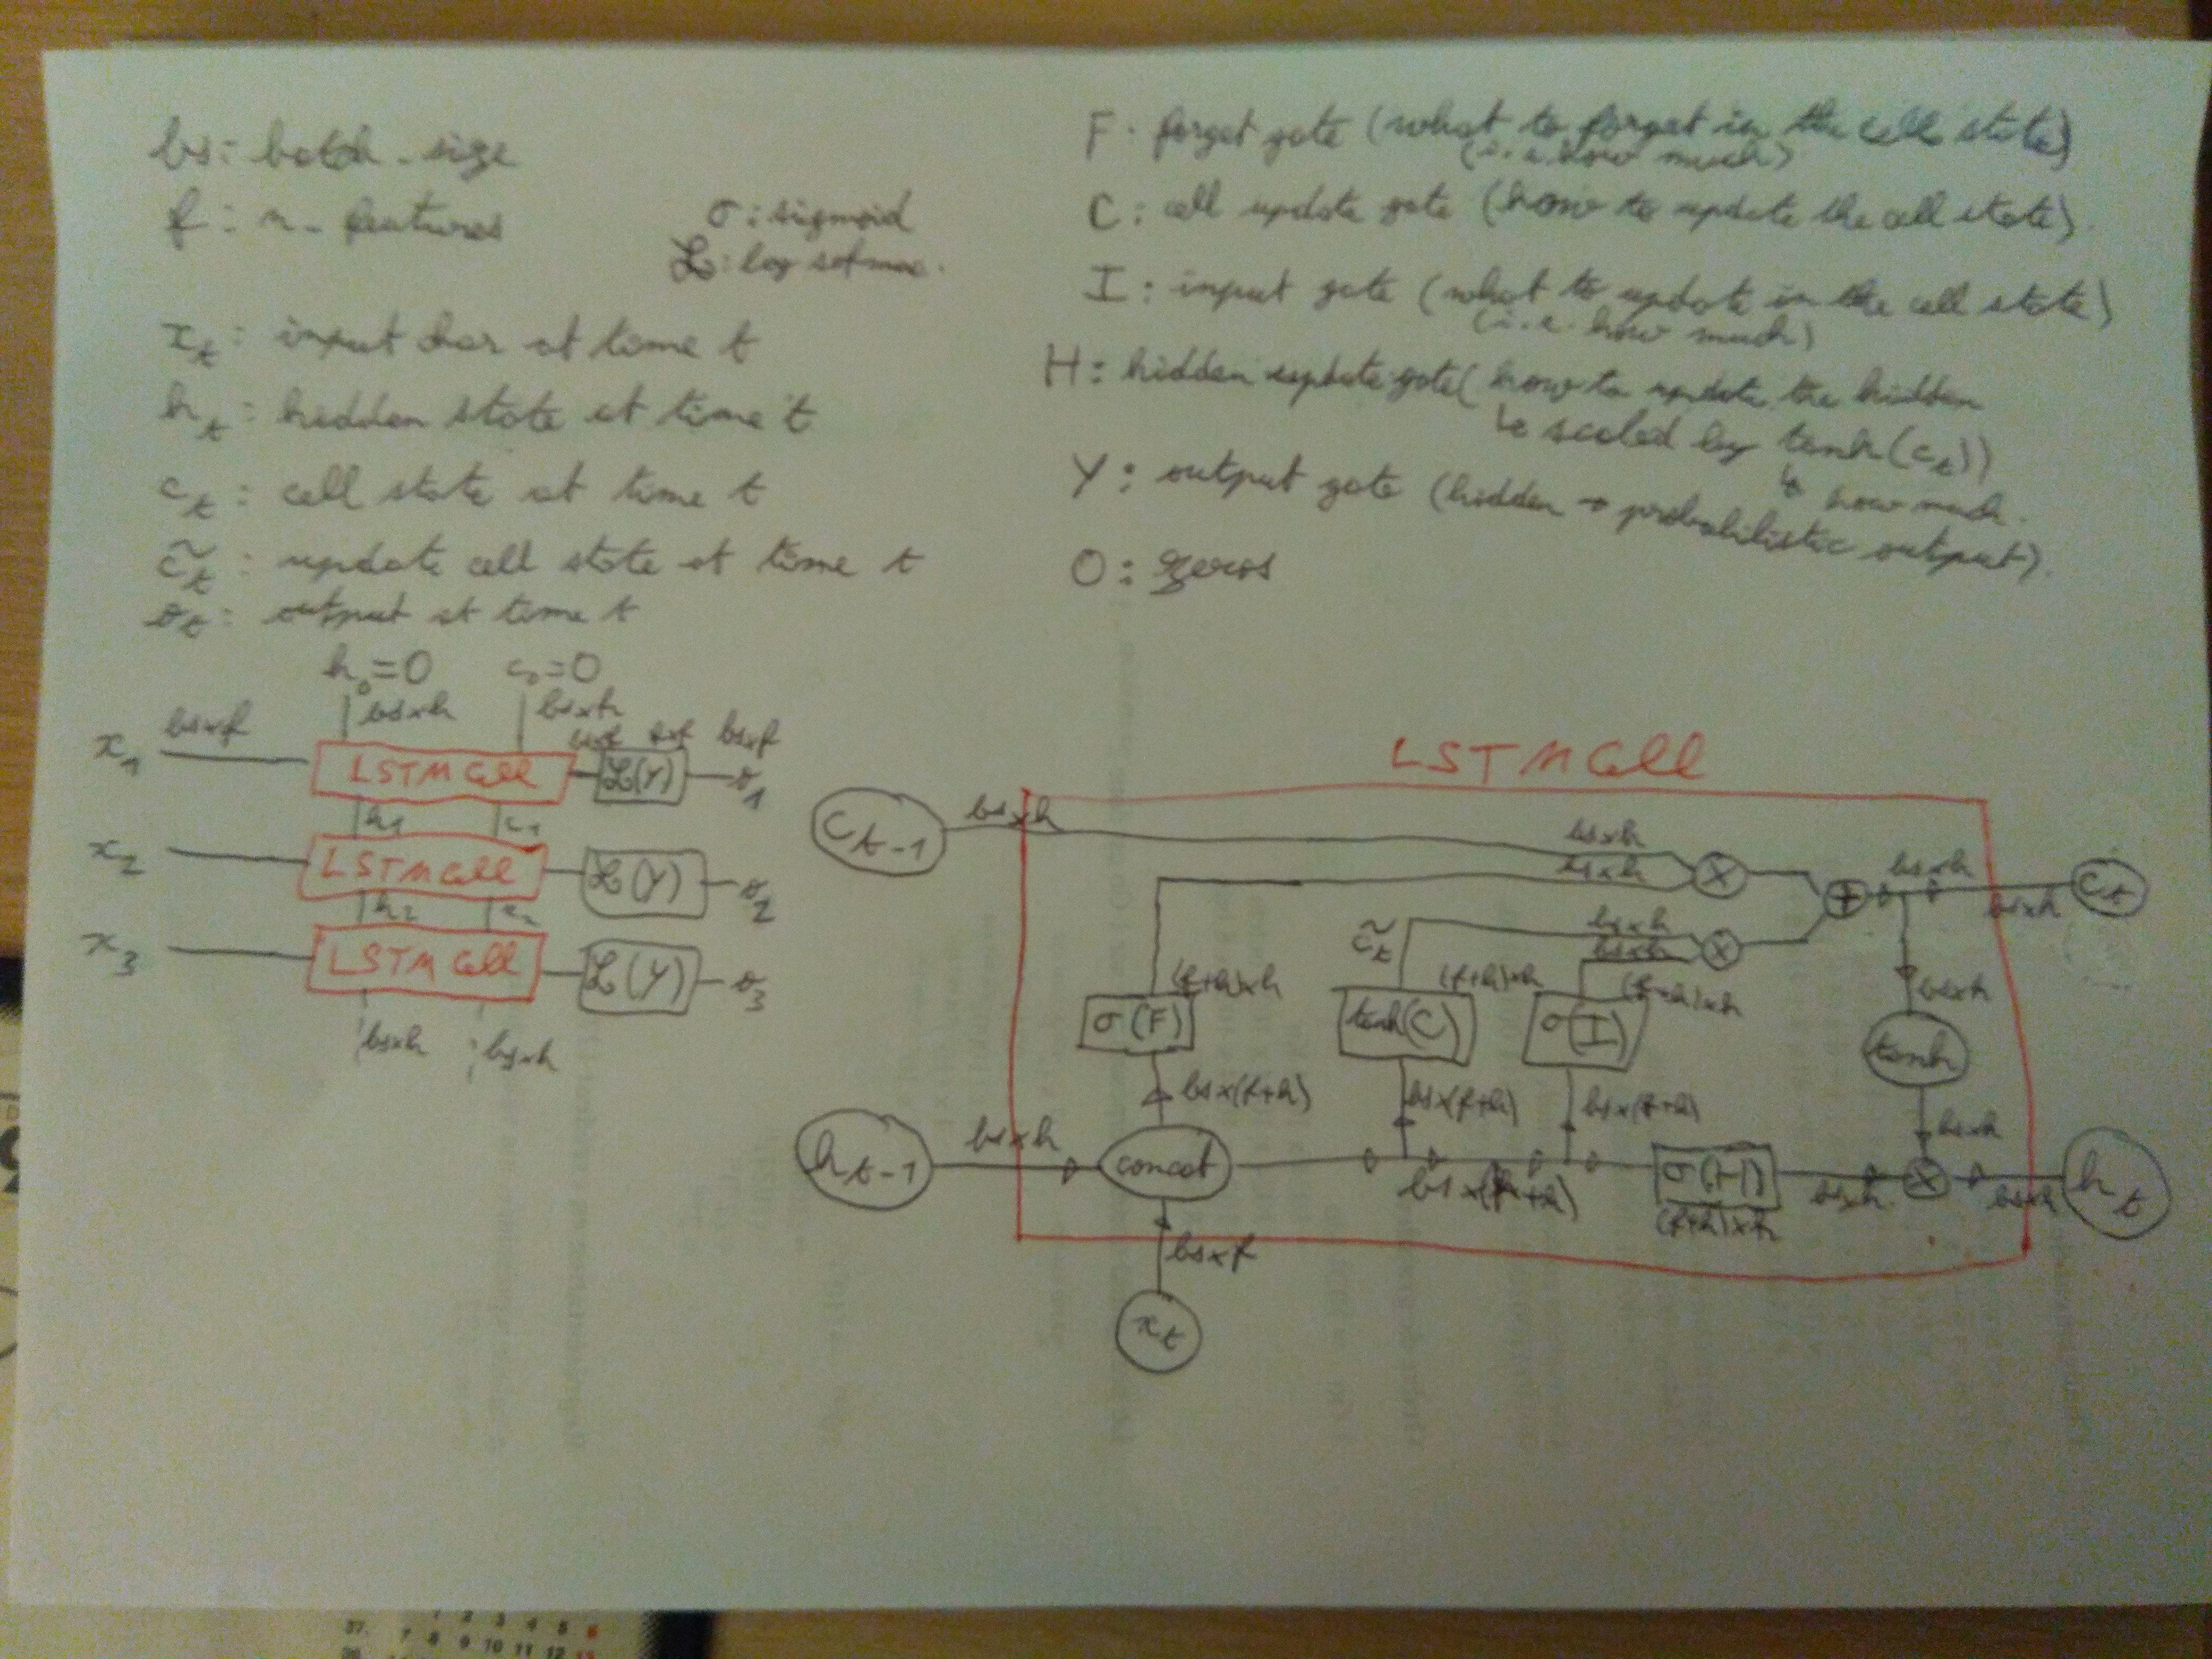 bs: batch-size
f: n- features
σ: sigmoid
ℒ: log sofmax.
x_t: input char at time t
h_t: hidden state at time t
c_t: cell state at time t
c̃_t: update cell state at time t
o_t: output at time t
F: forget gate (what to forget in the cell state)
(i.e how much)
C: cell update gate (how to update the cell state).
I: input gate (what to update in the cell state)
(i.e. how much)
H: hidden update gate (how to update the hidden
↳ scaled by tanh(c_t))
↳ how much.
Y: output gate (hidden → probabilistic output).
O: zeros
h_0=0 c_0=0
bsxh bsxh
x_1 bsxf LSTM Cell ℒ(Y) bsxf o_1
h_1 c_1
x_2 LSTM Cell ℒ(Y) o_2
h_2 c_2
x_3 LSTM Cell ℒ(Y) o_3
bsxh bsxh
LSTM Cell
c_t-1 bsxh bsxh × bsxh
bsxh + bsxh c_t
c̃_t bsxh bsxh ×
(f+h)xh (f+h)xh (f+h)xh bsxh
σ(F) tanh(C) σ(I) tanh
bsx(f+h) bsx(f+h) bsx(f+h) bsxh
h_t-1 bsxh concat bsx(f+h) σ(H) bsxh × bsxh h_t
(f+h)xh
bsxf
x_t
37. 1 2 3 4 5 6
7 8 9 10 11 12 13